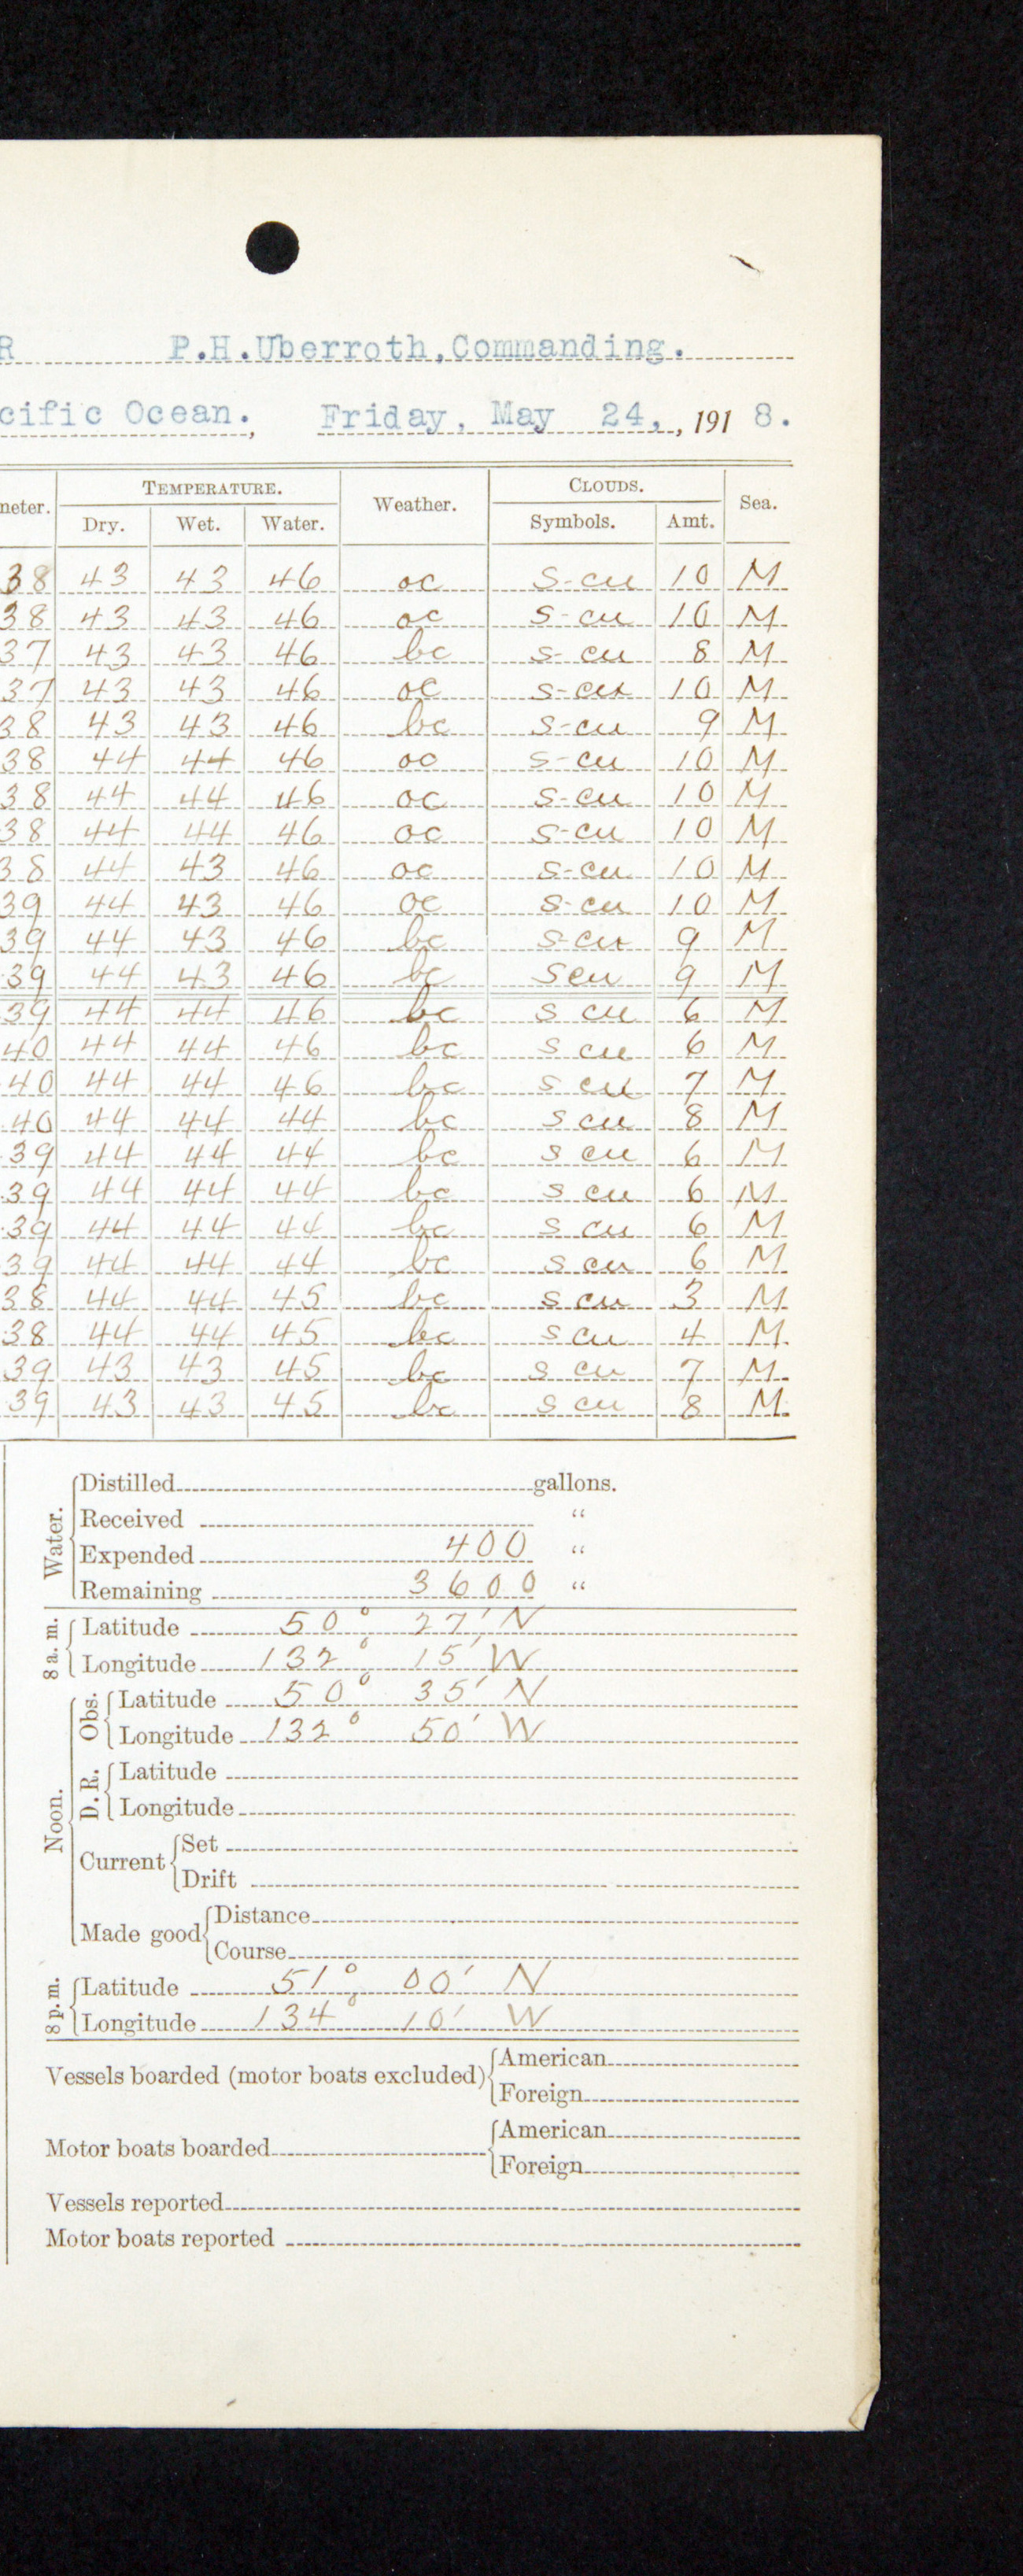 R P.H.Uberroth,Commanding.
cific Ocean., Friday, May 24,, 1918.
neter. TEMPERATURE. Weather. CLOUDS. Sea.
Dry. Wet. Water. Symbols. Amt.
38 43 43 46 oc S-cu 10 M
38 43 43 46 oc S-cu 10 M
37 43 43 46 bc s-cu 8 M
37 43 43 46 oc s-cu 10 M
38 43 43 46 bc s-cu 9 M
38 44 44 46 oc s-cu 10 M
38 44 44 46 oc s-cu 10 M
38 44 44 46 oc s-cu 10 M
38 44 43 46 oc s-cu 10 M
39 44 43 46 oc s-cu 10 M
39 44 43 46 bc s-cu 9 M
.39 44 43 46 bc Scu 9 M
39 44 44 46 bc s cu 6 M
40 44 44 46 bc s cu 6 M
.40 44 44 46 bc s cu 7 M
.40 44 44 44 bc s cu 8 M
.39 44 44 44 bc s cu 6 M
.39 44 44 44 bc s cu 6 M
.39 44 44 44 bc s cu 6 M
39 44 44 44 bc s cu 6 M
38 44 44 45 bc s cu 3 M
38 44 44 45 bc s cu 4 M
39 43 43 45 bc s cu 7 M
39 43 43 45 bc s cu 8 M
Water. Distilled gallons.
Received "
Expended 400 "
Remaining 3600 "
8 a. m. Latitude 50° 27' N
Longitude 132° 15' W
Noon. Obs. Latitude 50° 35' N
Longitude 132° 50' W
D. R. Latitude
Longitude
Current Set
Drift
Made good Distance
Course
8 p. m. Latitude 51° 00' N
Longitude 134° 10' W
Vessels boarded (motor boats excluded) American
Foreign
Motor boats boarded American
Foreign
Vessels reported
Motor boats reported